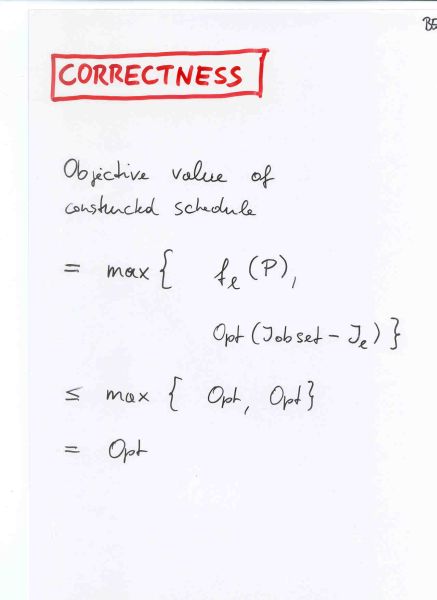 CORRECTNESS
Objective value of
constructed schedule
= max{ fℓ(P),
Opt(Jobset - Jℓ)}
≤ max { Opt, Opt}
= Opt